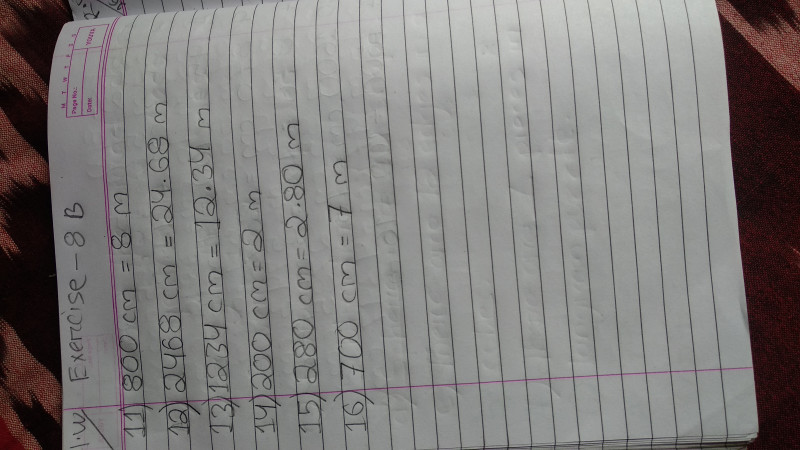 M T W T F S S
Page No.:
Date:
YOUVA
Exercise - 8 B
11) 800 cm = 8 m
12) 2468 cm = 24.68 m
13) 1234 cm = 12.34 m
14) 200 cm = 2 m
15) 280 cm = 2.80 m
16) 700 cm = 7 m